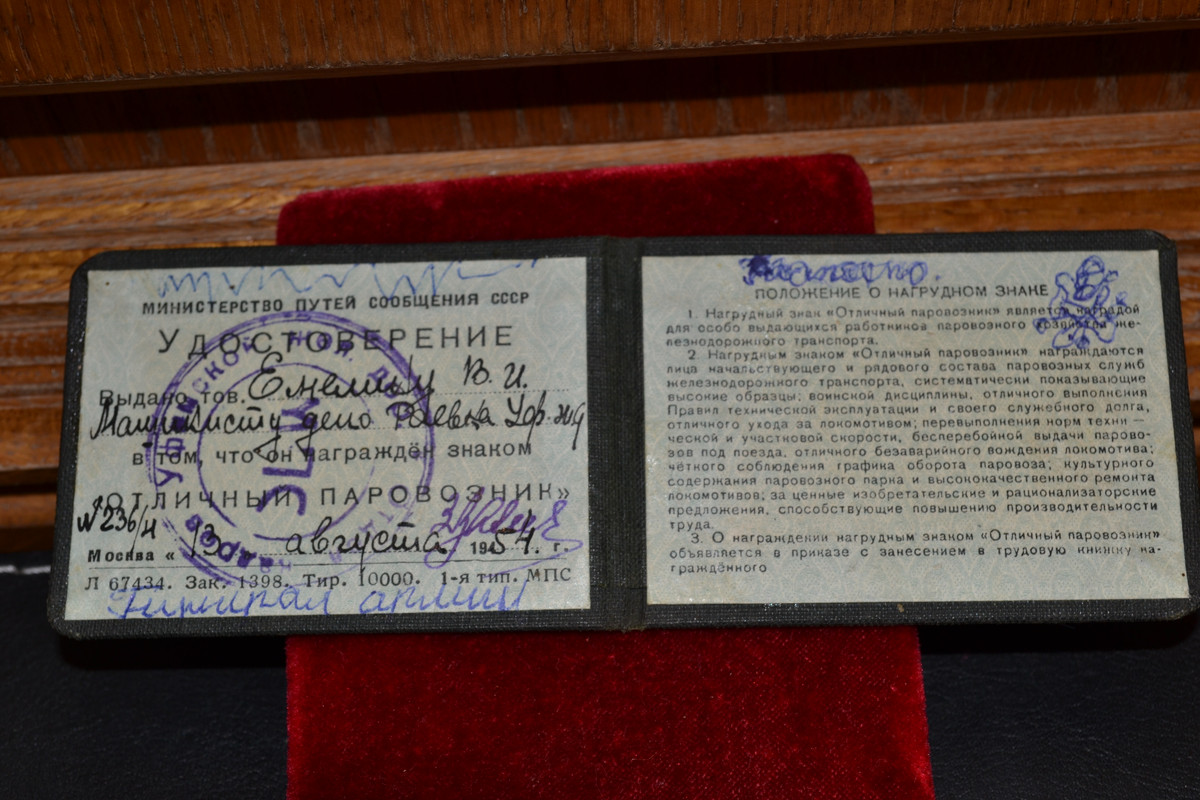 МИНИСТЕРСТВО ПУТЕЙ СООБЩЕНИЯ СССР
УДОСТОВЕРЕНИЕ
Выдано тов. Емелину В. И.
Машинисту депо Раевка Уф. жд
в том, что он награждён знаком
«ОТЛИЧНЫЙ ПАРОВОЗНИК»
№236/Н
Москва « 13 августа 1954. г.
Л 67434. Зак. 1398. Тир. 10000. 1-я тип. МПС
армии
ПОЛОЖЕНИЕ О НАГРУДНОМ ЗНАКЕ
1. Нагрудный знак «Отличный паровозник» является наградой
для особо выдающихся работников паровозного хозяйства же-
лезнодорожного транспорта.
2. Нагрудным знаком «Отличный паровозник» награждаются
лица начальствующего и рядового состава паровозных служб
железнодорожного транспорта, систематически показывающие
высокие образцы: воинской дисциплины, отличного выполнения
Правил технической эксплуатации и своего служебного долга,
отличного ухода за локомотивом; перевыполнения норм техни —
ческой и участковой скорости, бесперебойной выдачи парово-
зов под поезда, отличного безаварийного вождения локомотива;
чёткого соблюдения графика оборота паровоза; культурного
содержания паровозного парка и высококачественного ремонта
локомотивов; за ценные изобретательские и рационализаторские
предложения, способствующие повышению производительности
труда.
3. О награждении нагрудным знаком «Отличный паровозник»
объявляется в приказе с занесением в трудовую книжку на-
граждённого